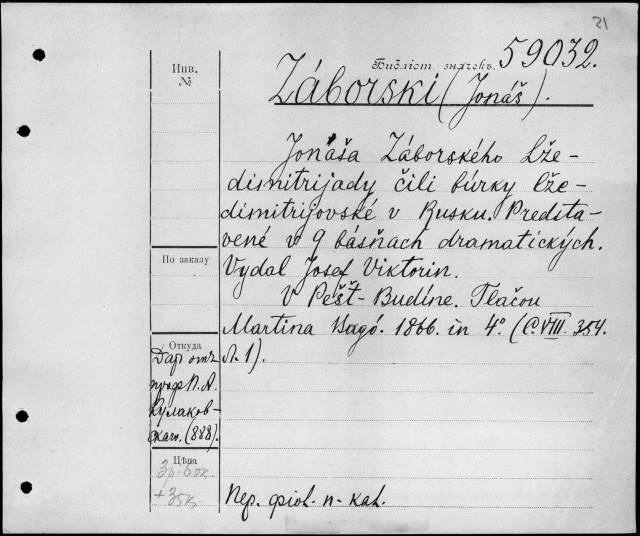 21
Инв.
№
Библіот. значекъ. 59032.
Záborski (Jonáš).
Jonáša Záborského Lže-
dimitrijady čili búrky lže-
dimitrijovské v Rusku. Predsta-
vené v 9 básňach dramatických.
По заказу
Vydal Josef Viktorin.
V Pešt-Budíne. Tlačou
Martina Bagó. 1866. in 4°. (C. VIII. 354.
л. 1).
Откуда
Даръ отъ
проф. П. А.
Кулаков-
скаго. (888).
Цѣна
3р. 60к
+ 35к.
Пер. фіол. п- кал.